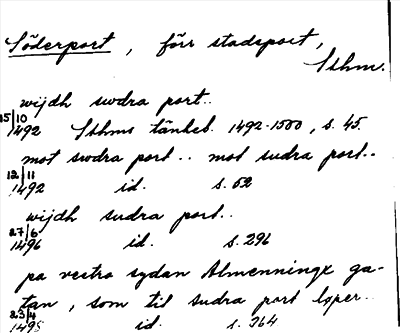 Söderport, förr stadsport,
Sthm.
wijdh swdra port..
15/10
1492 Sthms tänkeb. 1492-1500, s. 45.
mot swdra port.. mot sudra port..
12/11
1492 id. s. 52
wijdh sudra port..
27/6
1496 id. s. 296
pa vestra sydan Almenningx ga-
tan, som til sudra port löper..
23/4
1498 id. s. 364